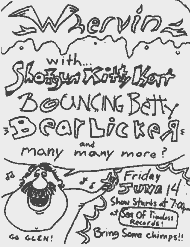 Whervin
with...
Shotgun Kitty Kort
BOUNCING Betty
Bear Licker
and
many many more?
Friday
JUNE 14
Show Starts at 7:00pm
at Son Of
Records!
Bring Some chimps!!
GO GLEN!